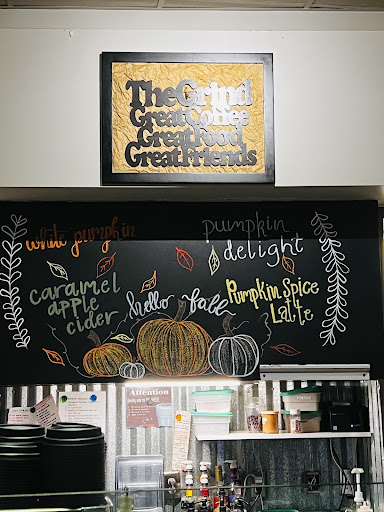 The Grind
Great Coffee
Great Food
Great Friends
white pumpkin
pumpkin
delight
caramel
apple
cider
hello fall
Pumpkin Spice
Latte
Attention